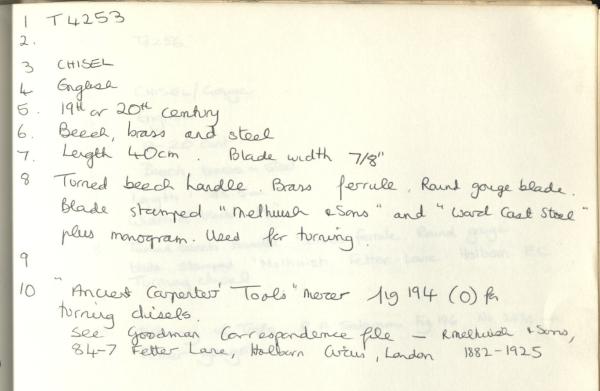 1 T4253
2.
3 CHISEL
4 English
5. 19th or 20th century
6. Beech, brass and steel
7. Length 40cm. Blade width 7/8"
8 Turned beech handle. Brass ferrule. Round gouge blade.
Blade stamped "Melhuish & Sons" and "Ward Cast Steel"
plus monogram. Used for turning.
9
10 "Ancient Carpenters' Tools" Mercer fig 194 (O) for
turning chisels.
See Goodman Correspondence file — R Melhuish & Sons,
84-7 Fetter Lane, Holborn Circus, London 1882-1925